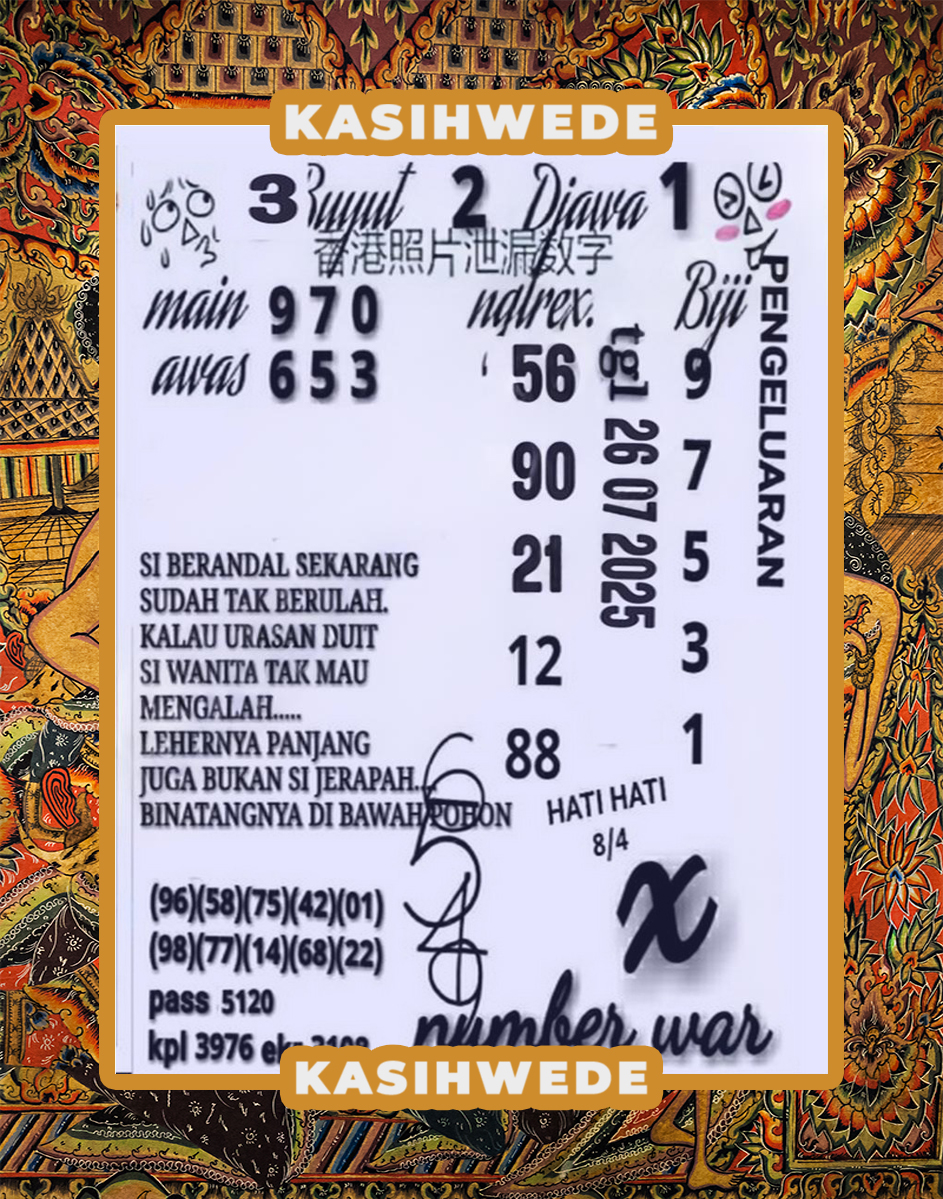 KASIHWEDE
3 Buyut 2 Djawa 1
香港照片泄漏数字
main 970
awas 653
ngtrex.
56
90
21
12
88
tgl 26 07 2025
Biji
9
7
5
3
1
PENGELUARAN
SI BERANDAL SEKARANG
SUDAH TAK BERULAH.
KALAU URASAN DUIT
SI WANITA TAK MAU
MENGALAH.....
LEHERNYA PANJANG
JUGA BUKAN SI JERAPAH....
BINATANGNYA DI BAWAH POHON
HATI HATI
8/4
(96)(58)(75)(42)(01)
(98)(77)(14)(68)(22)
pass 5120
kpl 3976
x
number war
KASIHWEDE